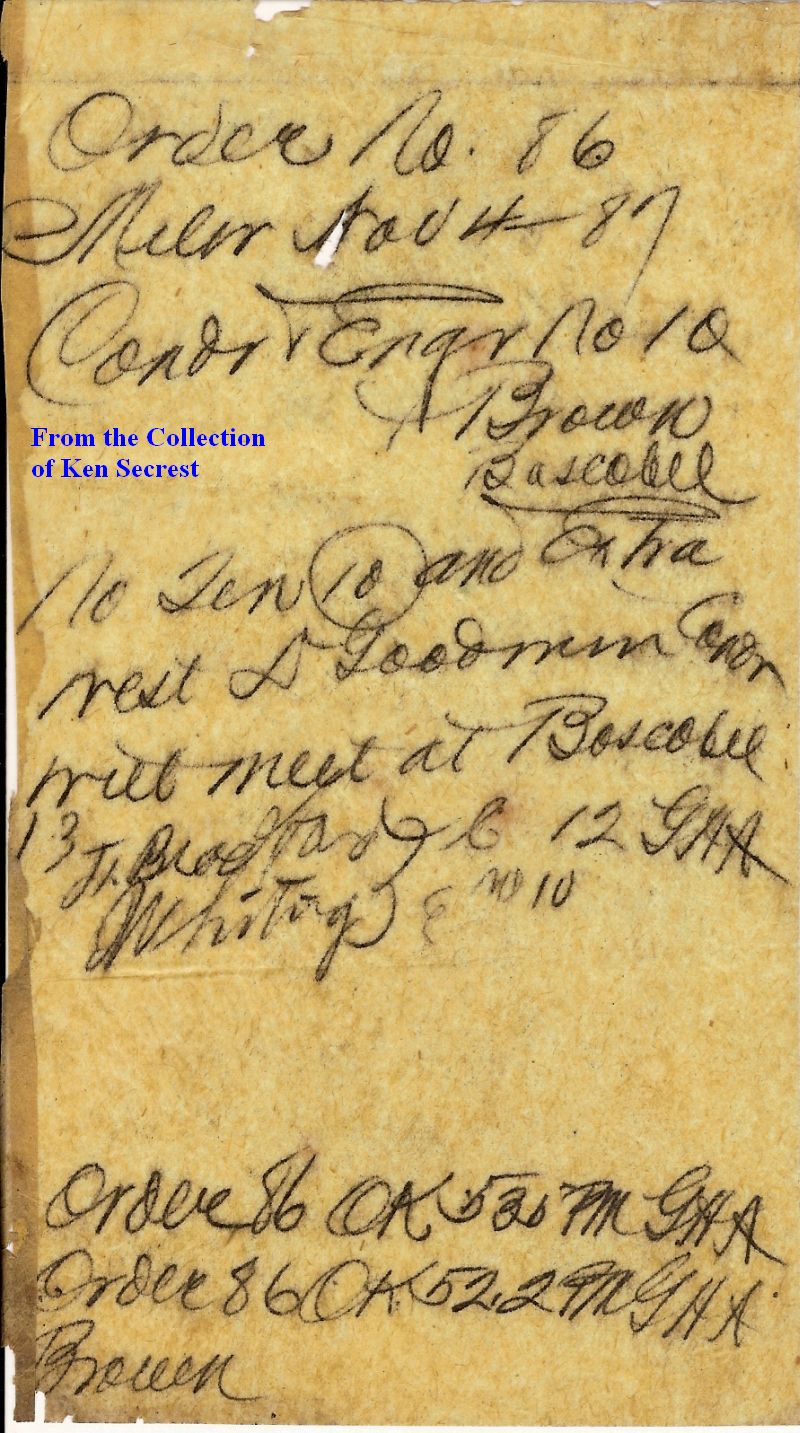 Order No. 86
Milw Nov 4 - 87
Condr & Engr No 10
Brown
Boscobel
From the Collection
of Ken Secrest
No Ten (10) and Extra
west D Goodman Condr
will meet at Boscobel
13 12 GHA
Whiting E No 10
Order 86 OK 535 PM GHA
Order 86 OK 522 PM GHA
Brown